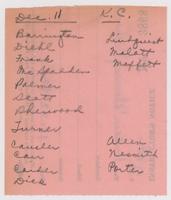 Dec. 11 K. C.
Barrington Lindquist
Diehl Malatt
Frank Maffett
McSpadden
Palmer
Scott
Sherwood
Turner
Causler Allen
Carr Nesmith
Carder Porter
Dick